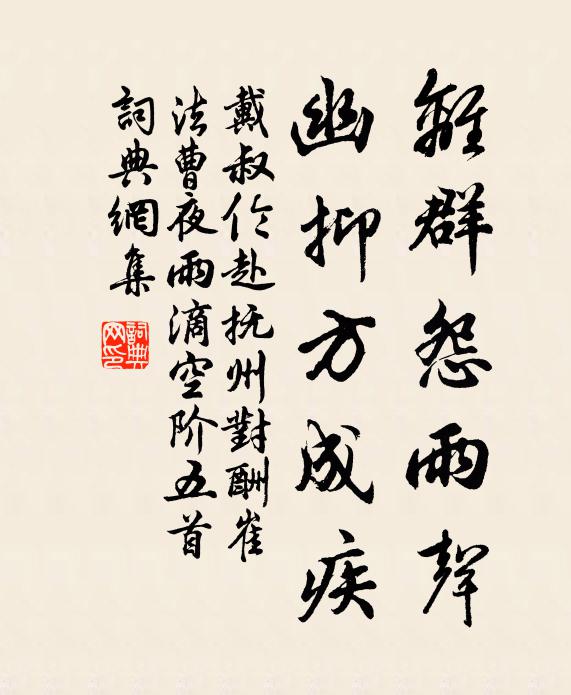 離群怨雨聲
幽抑方成疾
戴叔伦赴抚州對酬崔
法曹夜雨滴空阶五首
詞典網集
詞典
网印